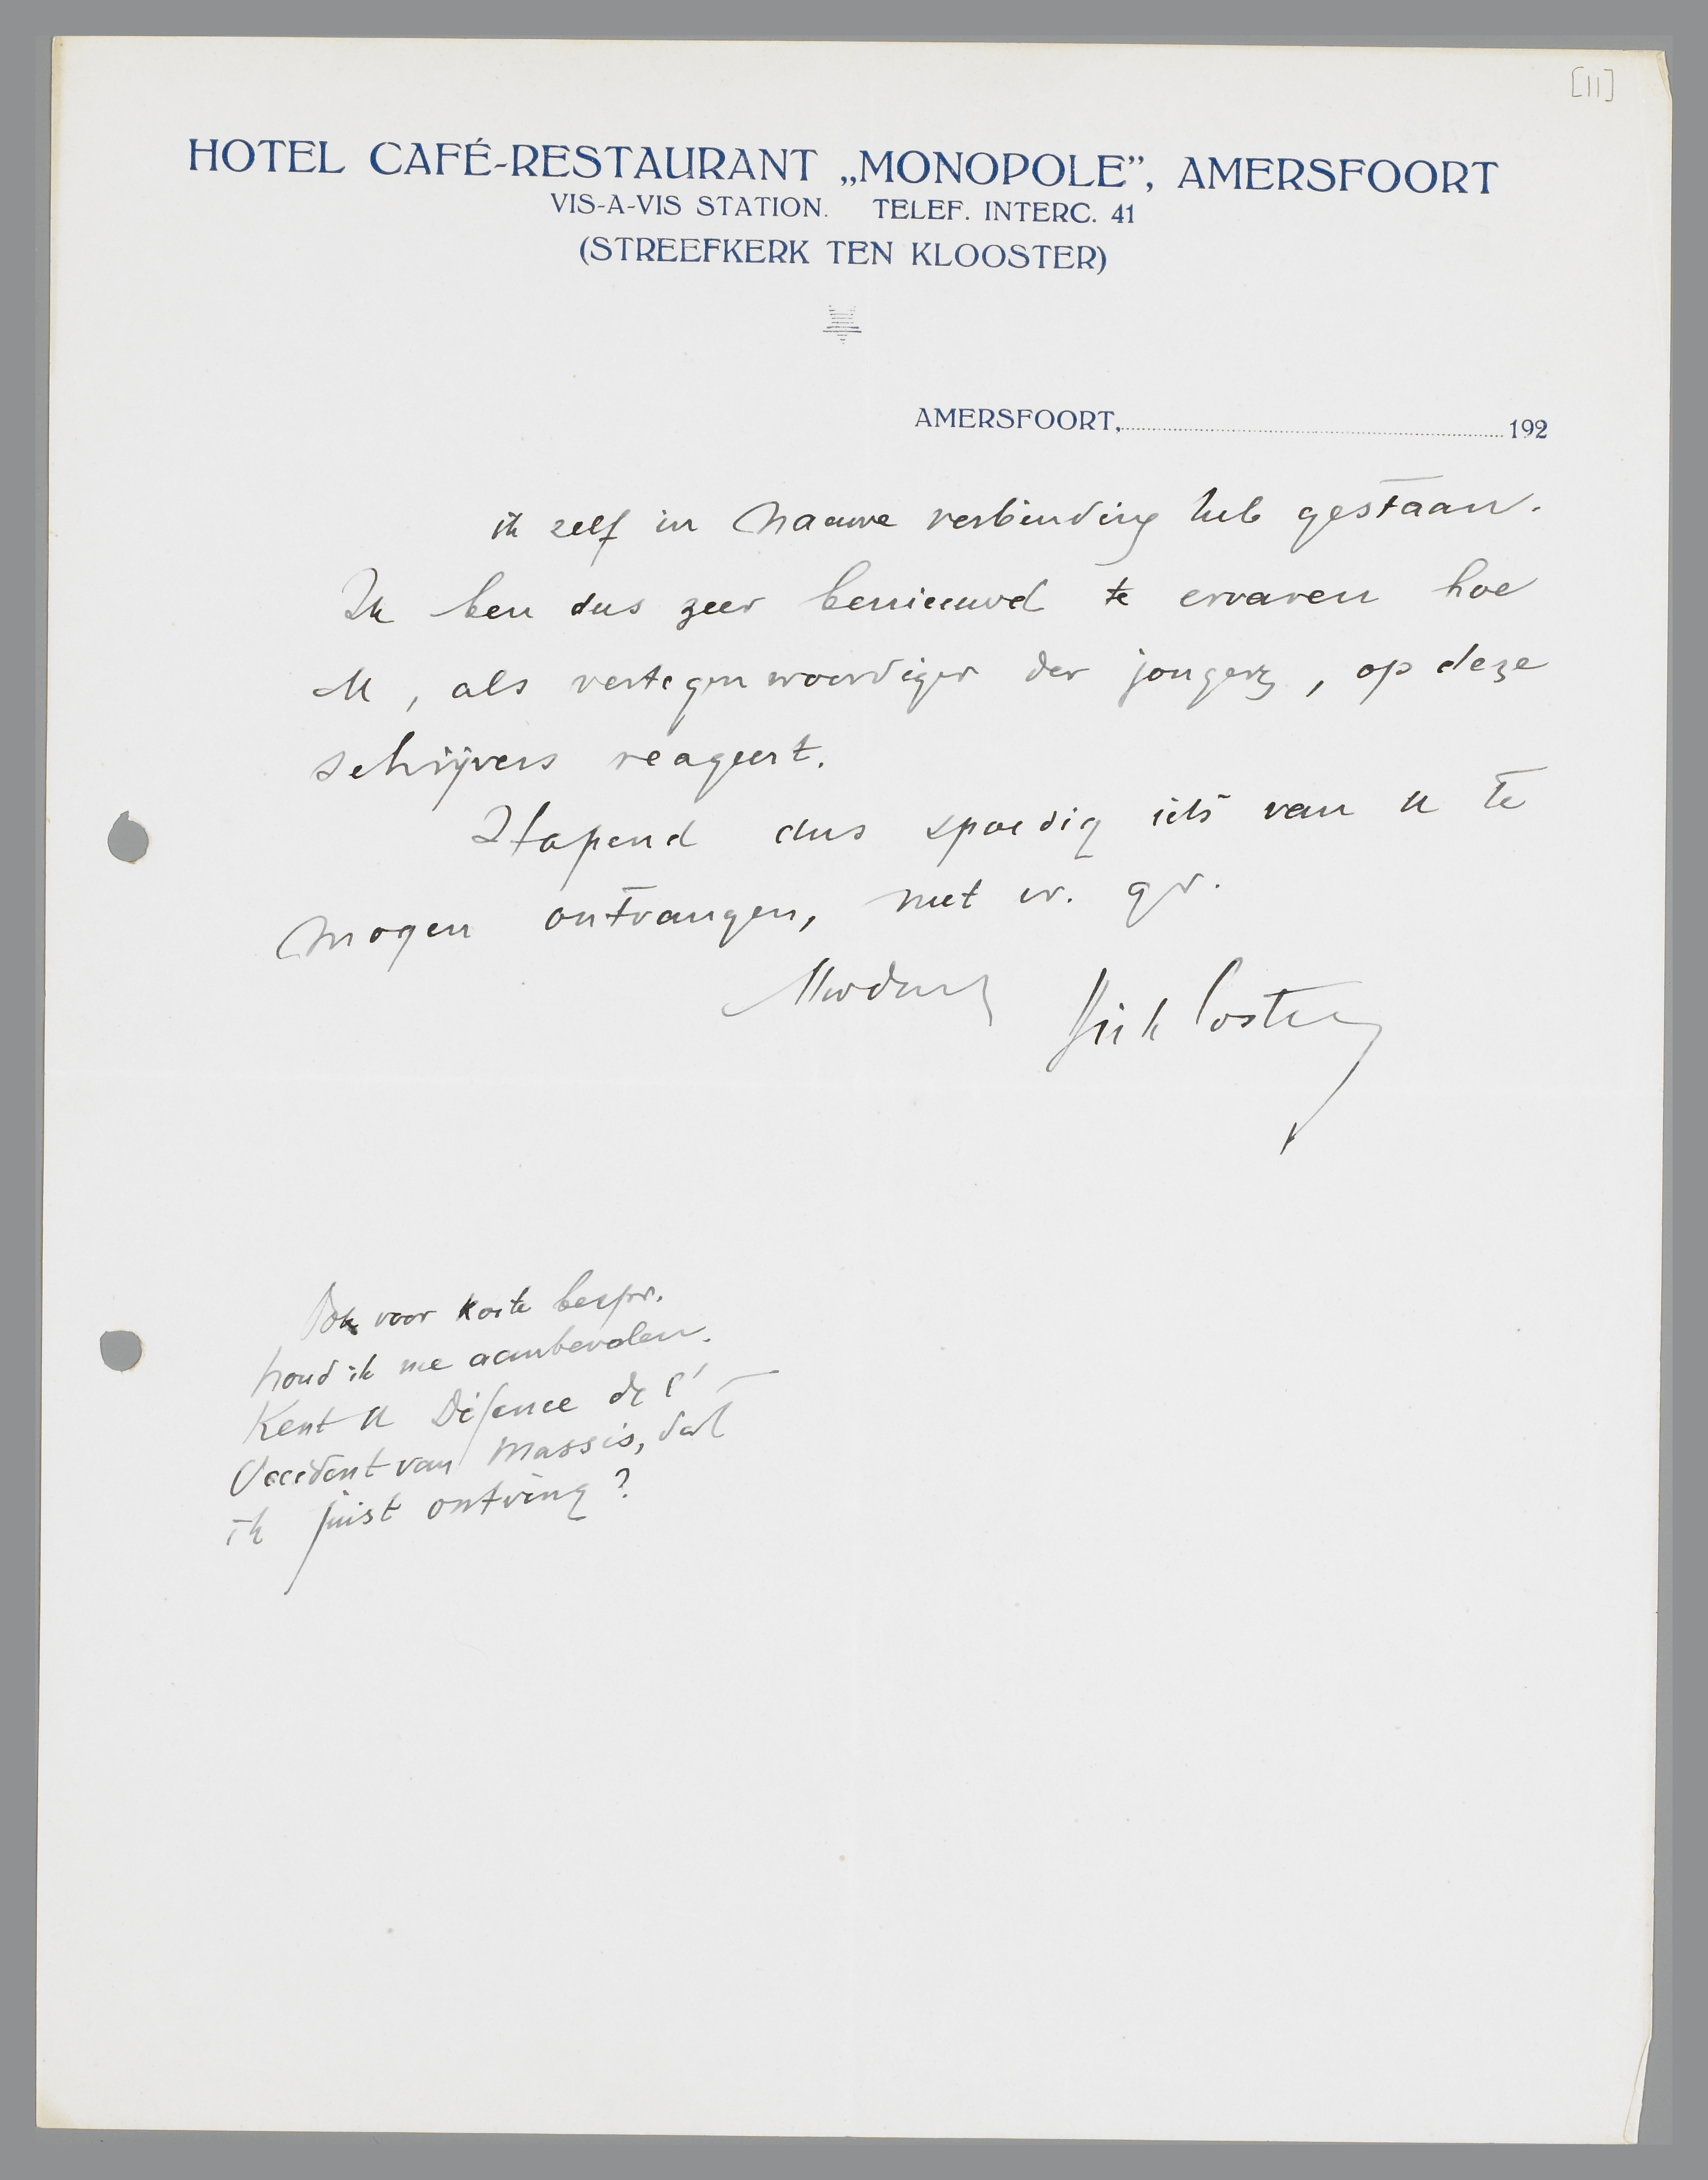 [II]
HOTEL CAFÉ-RESTAURANT „MONOPOLE”, AMERSFOORT
VIS-A-VIS STATION. TELEF. INTERC. 41
(STREEFKERK TEN KLOOSTER)
AMERSFOORT, 192
ik zelf in nauwe verbinding heb gestaan.
Ik ben dus zeer benieuwd te ervaren hoe
U, als vertegenwoordiger der jongeren, op deze
schrijvers reageert.
Hopend dus spoedig iets van U te
mogen ontvangen, met vr. gr.
Dirk Coster
Ook voor korte bespr.
houd ik me aanbevolen.
Kent U Défence de l'
Occident van Massis, dat
ik juist ontving?